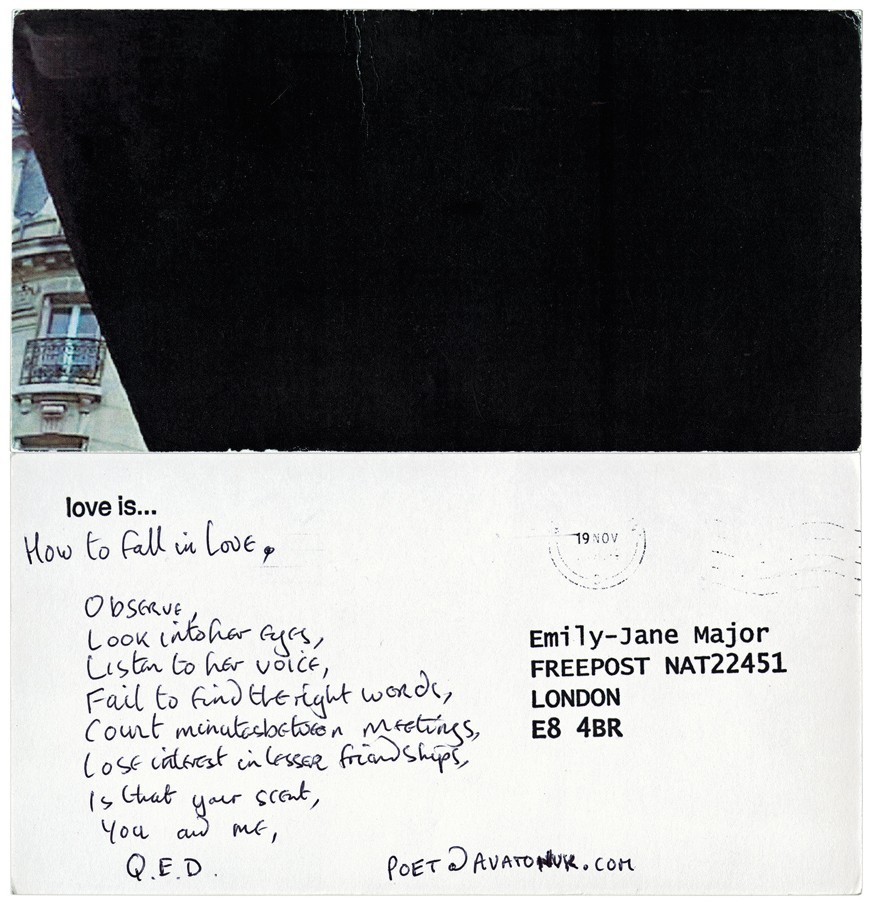 love is...
How to fall in Love.
19 NOV
Observe,
Look into her eyes,
Listen to her voice,
Fail to find the right words,
Count minutes between meetings,
Lose interest in lesser friendships,
Is that your scent,
You and me,
Q.E.D.
Emily-Jane Major
FREEPOST NAT22451
LONDON
E8 4BR
POET@AVATONUK.COM